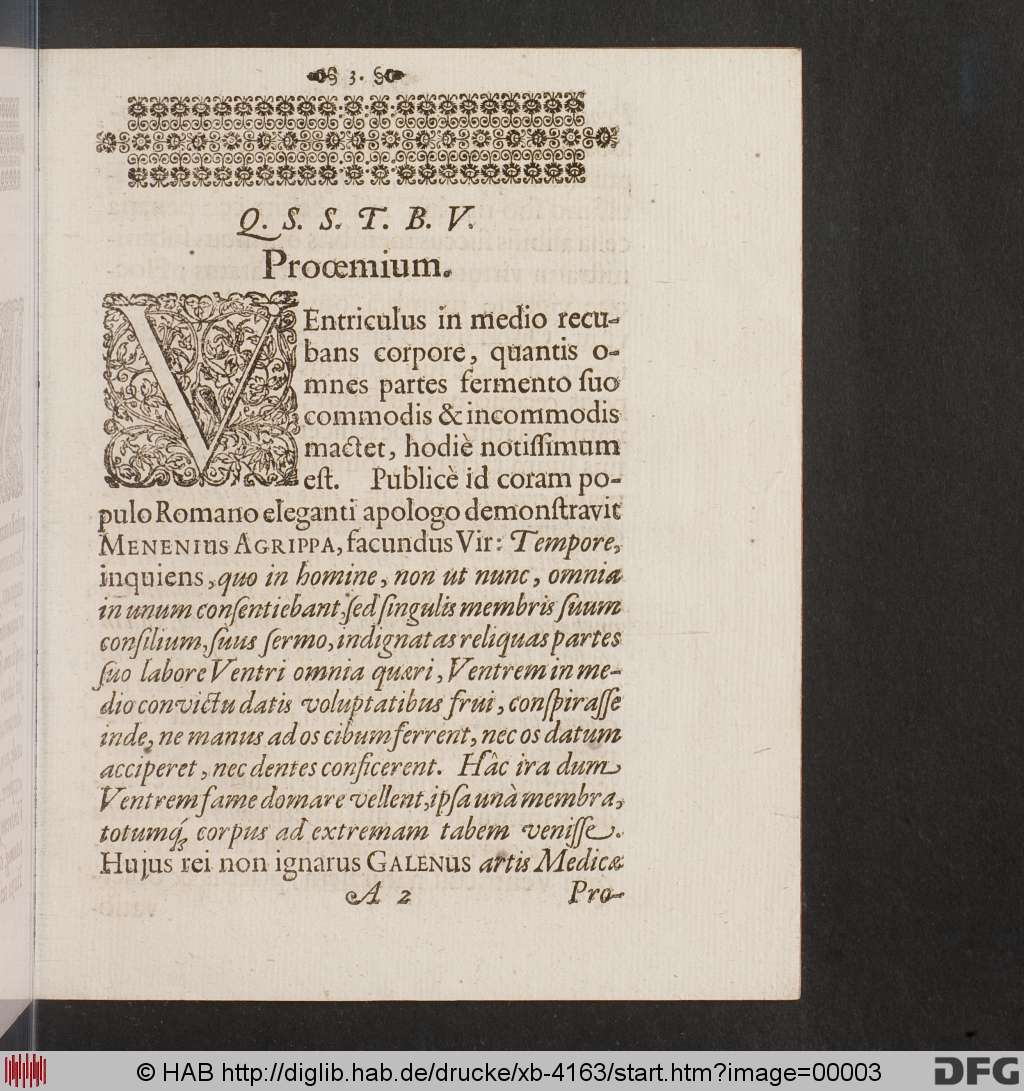 3.
Q. S. S. T. B. V.
Proœmium.
VEntriculus in medio recu-
bans corpore, quantis o-
mnes partes fermento ſuo
commodis & incommodis
mactet, hodiè notiſſimum
eſt. Publicè id coram po-
pulo Romano eleganti apologo demonſtravit
MENENIus AGRIPPA, facundus Vir: Tempore,
inquiens, quo in homine, non ut nunc, omnia
in unum conſentiebant, ſed ſingulis membris ſuum
conſilium, ſuus ſermo, indignatas reliquas partes
ſuo labore Ventri omnia quæri, Ventrem in me-
dio convictu datis voluptatibus frui, conſpiraſſe
inde, ne manus ad os cibum ferrent, nec os datum
acciperet, nec dentes conficerent. Hâc ira dum
Ventrem fame domare vellent, ipſa unà membra,
totumq́; corpus ad extremam tabem veniſſe.
Hujus rei non ignarus GALENus artis Medicæ
A 2 Pro-
© HAB http://diglib.hab.de/drucke/xb-4163/start.htm?image=00003
DFG